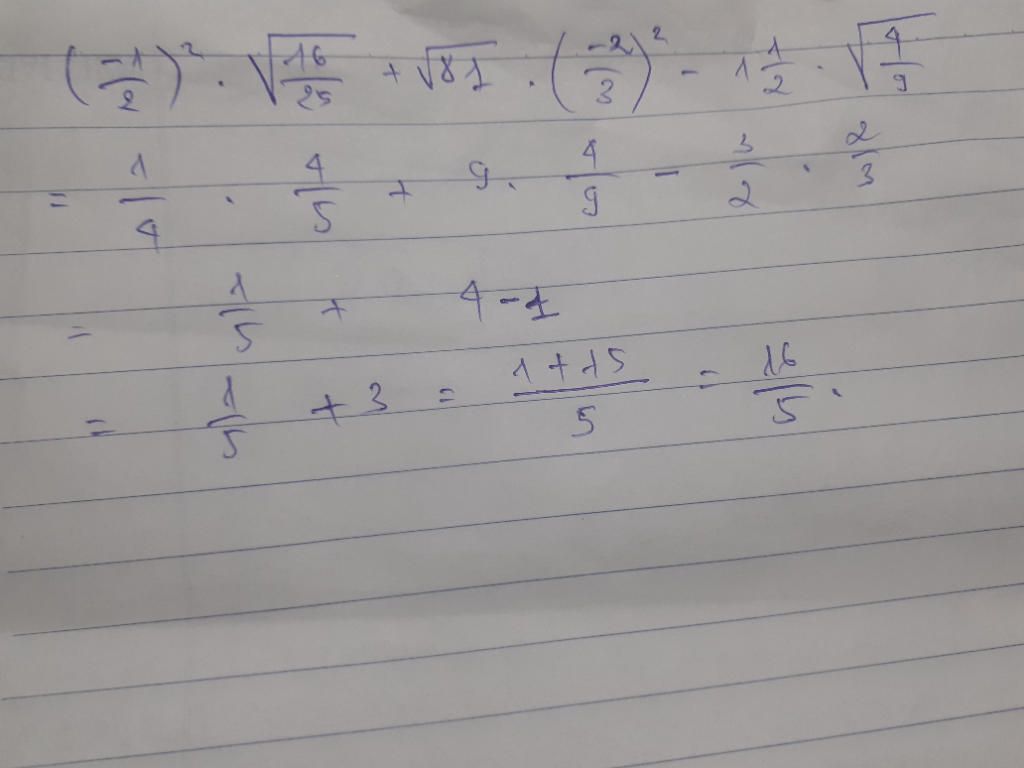 (-1/2)² . √(16/25) + √81 . (-2/3)² - 1 1/2 . √(4/9)
= 1/4 . 4/5 + 9 . 4/9 - 3/2 . 2/3
= 1/5 + 4 - 1
= 1/5 + 3 = (1 + 15)/5 = 16/5 .